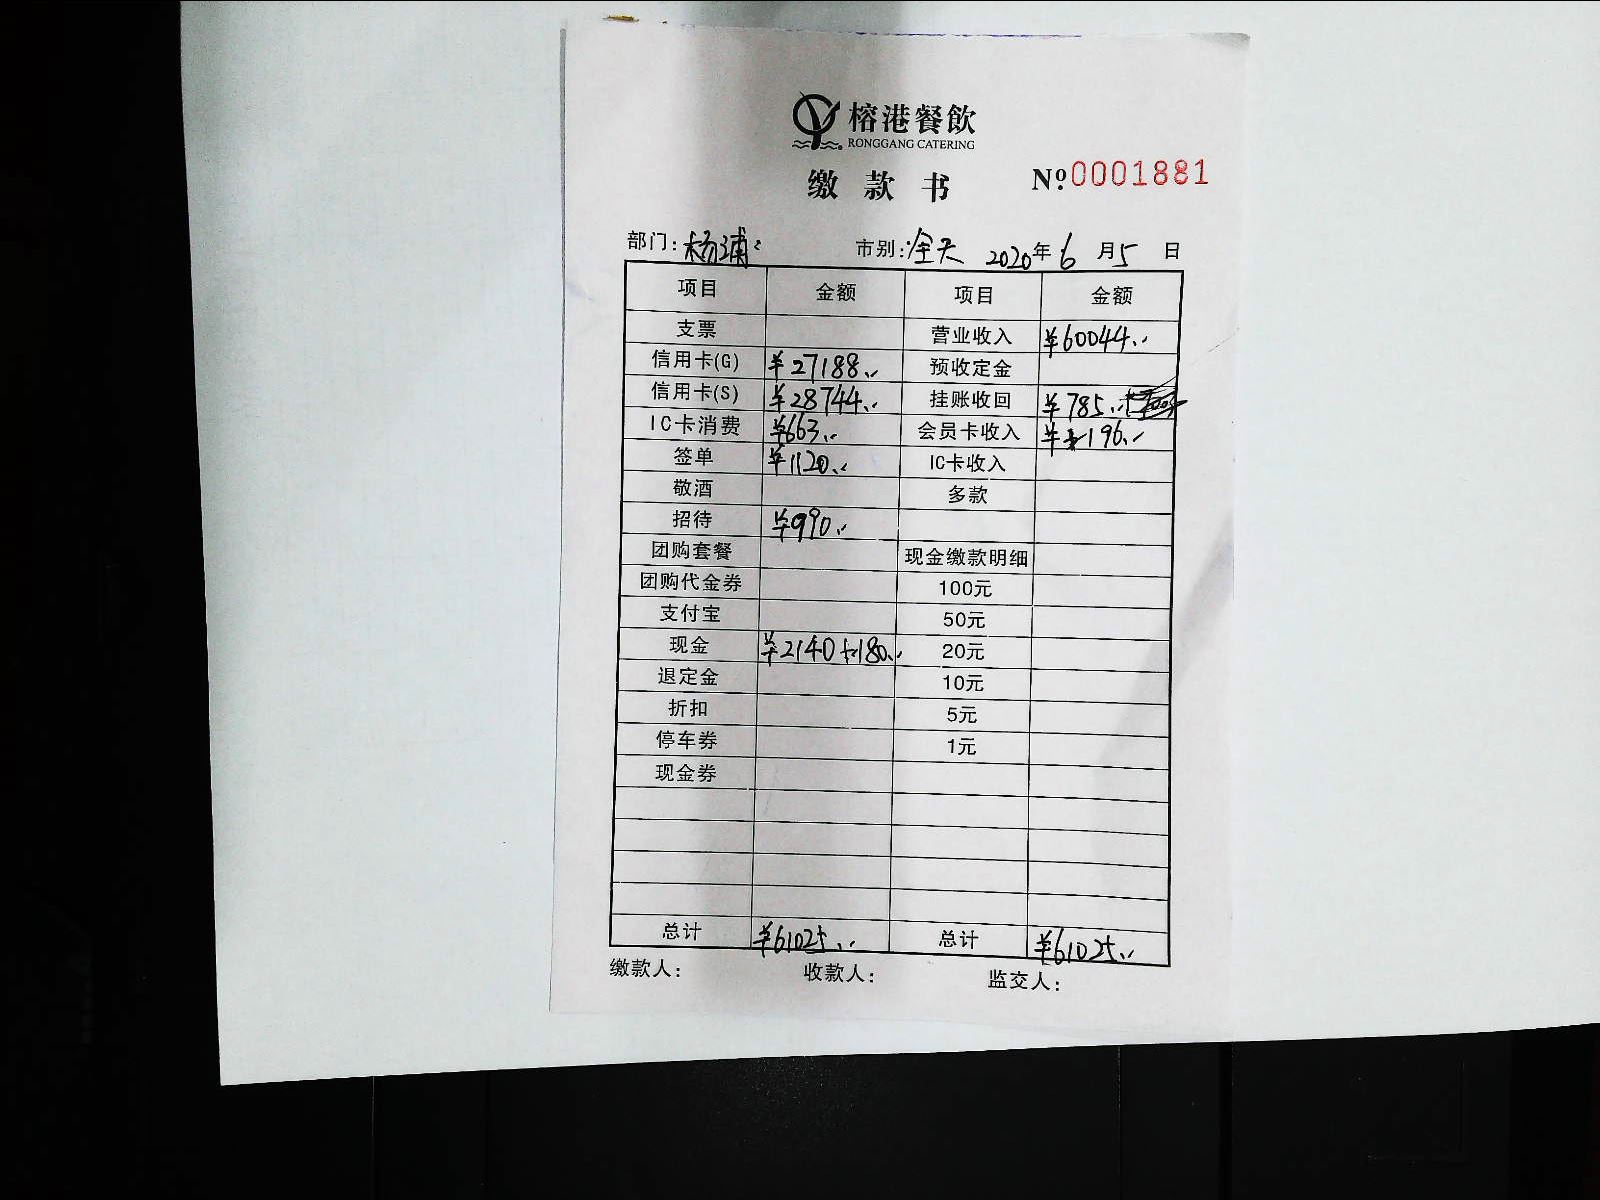 榕港餐飲
RONGGANG CATERING
缴款书 №0001881
部门：杨浦 市别：全天 2020年6月5日
项目 金额 项目 金额
支票 营业收入 ¥60044.
信用卡(G) ¥27188. 预收定金
信用卡(S) ¥28744. 挂账收回 ¥785.
IC卡消费 ¥663. 会员卡收入 ¥196.
签单 ¥1120. IC卡收入
敬酒 多款
招待 ¥990.
团购套餐 现金缴款明细
团购代金券 100元
支付宝 50元
现金 ¥2140+180. 20元
退定金 10元
折扣 5元
停车券 1元
现金券
总计 ¥61025. 总计 ¥61025.
缴款人： 收款人： 监交人：